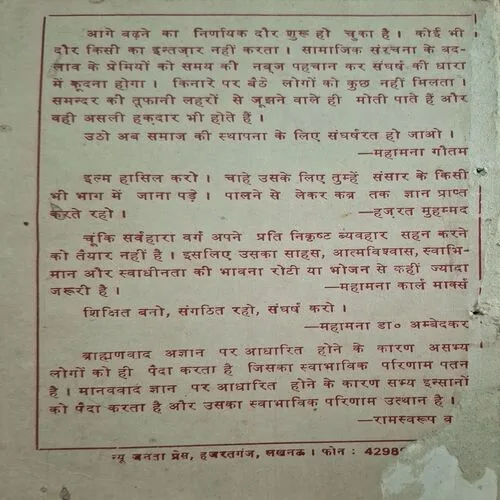 आगे बढ़ने का निर्णायक दौर शुरू हो चुका है । कोई भी
दौर किसी का इन्तज़ार नहीं करता । सामाजिक संरचना के बद-
लाव के प्रेमियों को समय की नब्ज पहचान कर संघर्ष की धारा
में कूदना होगा । किनारे पर बैठे लोगों को कुछ नहीं मिलता ।
समन्दर की तूफानी लहरों से जूझने वाले ही मोती पाते हैं और
वही असली हक़दार भी होते हैं ।
उठो अब समाज की स्थापना के लिए संघर्षरत हो जाओ ।
—महामना गौतम
इल्म हासिल करो । चाहे उसके लिए तुम्हें संसार के किसी
भी भाग में जाना पड़े । पालने से लेकर कब्र तक ज्ञान प्राप्त
करते रहो ।
—हज़रत मुहम्मद
चूंकि सर्वहारा वर्ग अपने प्रति निकृष्ट व्यवहार सहन करने
को तैयार नहीं है । इसलिए उसका साहस, आत्मविश्वास, स्वाभि-
मान और स्वाधीनता की भावना रोटी या भोजन से कहीं ज्यादा
जरूरी है ।
—महामना कार्ल मार्क्स
शिक्षित बनो, संगठित रहो, संघर्ष करो ।
—महामना डा० अम्बेदकर
ब्राह्मणवाद अज्ञान पर आधारित होने के कारण असभ्य
लोगों को ही पैदा करता है जिसका स्वाभाविक परिणाम पतन
है । मानववाद ज्ञान पर आधारित होने के कारण सभ्य इन्सानों
को पैदा करता है और उसका स्वाभाविक परिणाम उत्थान है ।
—रामस्वरूप व
न्यू जनता प्रेस, हजरतगंज, लखनऊ । फोन : 4298